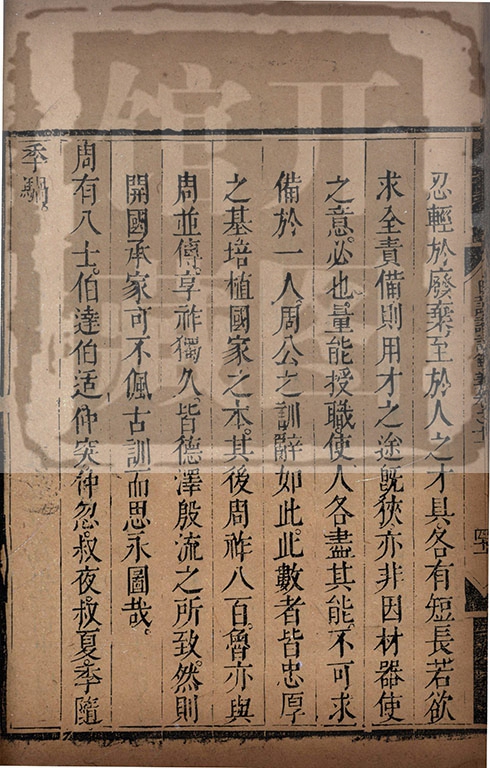 忍輕於廢棄至於人之才具各有短長若欲
求全責備則用才之途旣狹亦非因材器使
之意必也量能授職使人各盡其能不可求
備於一人周公之訓辭如此此數者皆忠厚
之基培植國家之本其後周祚八百魯亦與
周並傳享祚獨久皆德澤殷流之所致然則
開國承家可不佩古訓而思永圖哉
周有八士伯達伯适仲突仲忽叔夜叔夏季隨
季騧